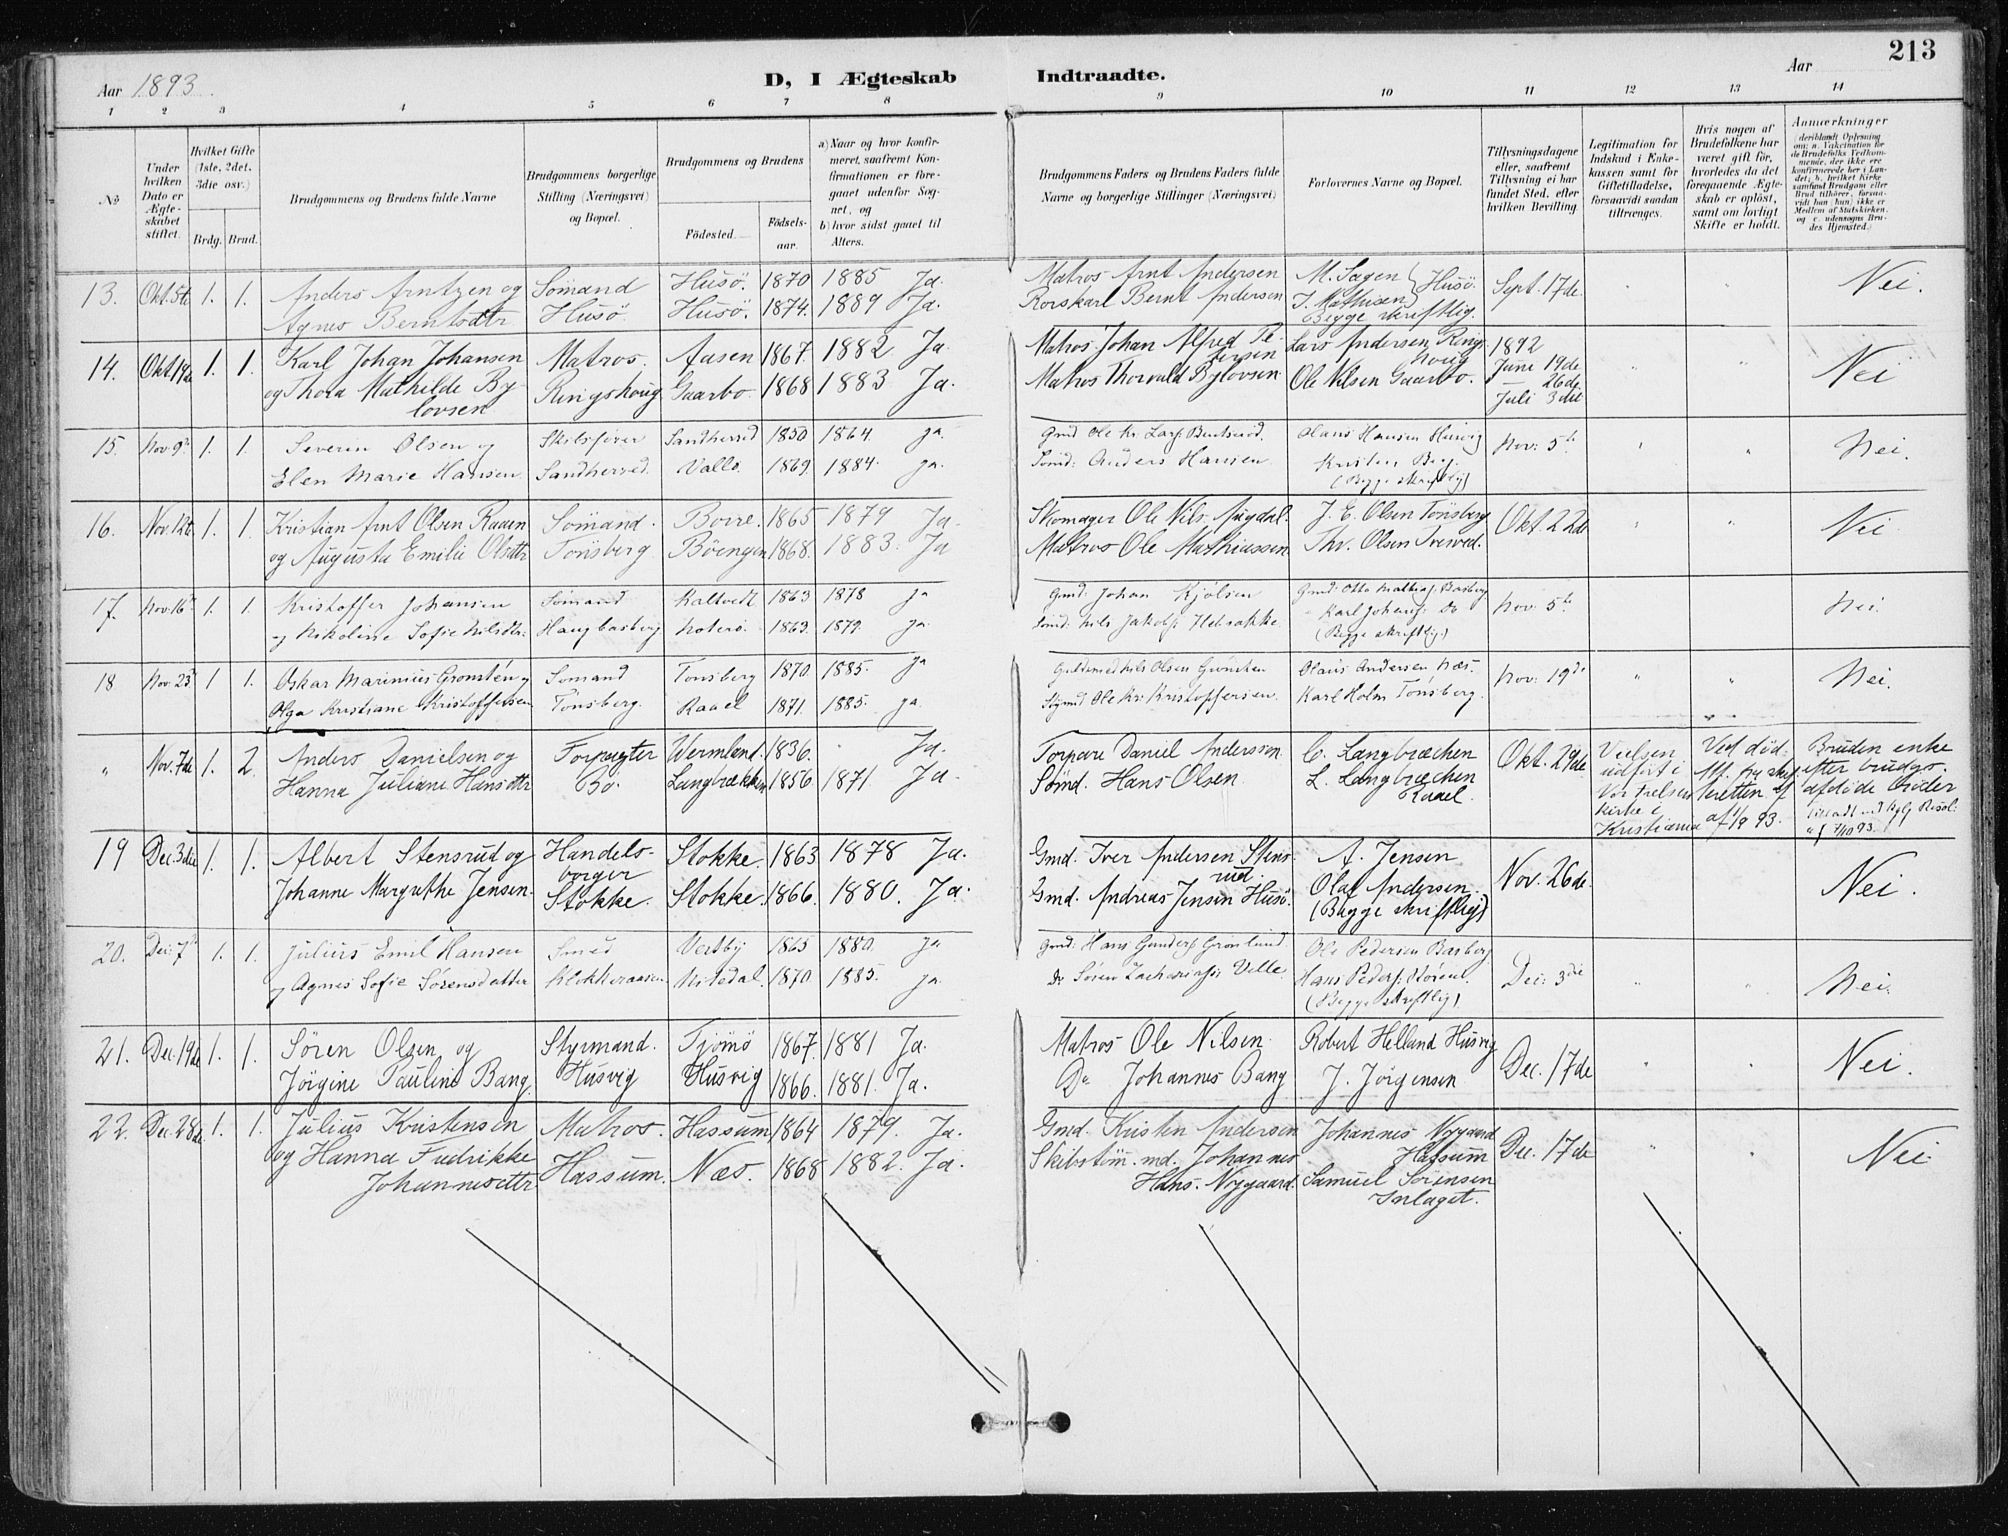 213
Aar 1893.
D, I Ægteskab Indtraadte.
Aar
1 2 3 4 5 6 7 8 9 10 11 12 13 14
No
Under hvilken Dato er Ægteskabet stiftet.
Hvilket Gifte (1ste, 2det, 3die osv.)
Brdg. Brud.
Brudgommens og Brudens fulde Navne
Brudgommens borgerlige Stilling (Næringsvei) og Bopæl.
Brudgommens og Brudens
Fødested. Fødselsaar.
a) Naar og hvor konfirmeret, saafremt Konfirmationen er foregaaet udenfor Sognet, og
b) hvor sidst gaaet til Alters.
Brudgommens Faders og Brudens Faders fulde Navne og borgerlige Stillinger (Næringsvei)
Forlovernes Navne og Bopæl.
Tillysningsdagene eller, saafremt Tillysning ei har fundet Sted, efter hvilken Bevilling
Legitimation for Indskud i Enkekassen samt for Giftetilladelse, forsaavidt saadan tiltrænges.
Hvis nogen af Brudefolkene har været gift før, hvorledes da det foregaaende Ægteskab er opløst, samt om lovligt Skifte er holdt.
Anmærkninger (deriblandt Oplysning om; a. Vakcination for de Brudefolks Vedkommende, der ikke ere konfirmerede her i Landet; b. hvilket Kirkesamfund Brudgom eller Brud tilhører, forsaavidt han (hun) ikke er Medlem af Statskirken, og c. udensogns Brudes Hjemsted.
13. Okt. 5te 1. 1. Anders Arntzen og Sømand Husö. 1870 1885 Ja. Matros Arnt Andersen M. Sagen Husö. Sept. 17de " " Nei.
Agnes Berntsdtr Husö. Husö. 1874. 1889 Ja. Rorskarl Bernt Andersen J. Mathisen
Begge skriftlig.
14. Okt. 19de 1. 1. Karl Johan Johansen Matros. Aasen 1867. 1882 Ja. Matros Johan Alfred Pe- Lars Andersen Rings- 1892
tersen houg June 19de " " Nei
og Thora Mathilde By- Ringshoug Gaarbo. 1868 1883 Ja. Matros Thorvald Bylovsen Ole Nilsen Gaarbo. " 26de
lovsen Juli 3die
15. Nov. 9de 1. 1. Severin Olsen og Skibsfører Sandherred 1850 1864. ja. Gmd Ole Kr. Lars. Olaus Hansen Husvig Nov. 5te " " Nei.
Elen Marie Hansen Sandherred. Vallø. 1869. 1884. ja. Sømd: Anders Hansen Kristen Berg.
(Begge skriftlig)
16. Nov. 12te 1. 1. Kristian Arnt Olsen Raaen Sömand. Borre. 1865 1879 Ja. Skomager Ole Nils. J. E. Olsen Tönsberg Okt. 22de " " Nei
og Augusta Emilie Olsdtr Tönsberg. Böengen 1868. 1883. Ja Matros Ole Mathiassen Thv. Olsen Tverved.
17. Nov. 16de 1. 1. Kristoffer Johansen Sømand Kaltvedt 1863 1878 ja Gmd: Johan Kjølsen Gmd: Otto Mathias. Basberg Nov: 5te " " Nei.
og Nikoline Sofie Nilsdtr: Haugbasberg Noterö. 1863. 1879. ja. Sømd: Nils Jakobs: Karl Johans: Do
(Begge skriftlig.)
18 Nov. 23de 1 1. Oskar Marinius Grønsten og Sømand Tønsberg 1870. 1885. ja Guldsmed Nils Olsen Grønsten Olaus Andersen Næs. Nov: 19de " " Nei.
Olga Kristiane Kristoffersen Tönsberg. Raael 1871. 1885. ja. Stymd Ole Kr. Kristoffersen. Karl Holm Tönsberg.
" Nov. 7de 1. 2. Anders Danielsen og Forpagter Wermland. 1836. " Ja. Torpare Daniel Andersson C. Langbræchen Okt. 29de Vielsen Ved død. Bruden enke
Hanna Juliane Hansdtr Bö. Langbrækken 1856 1871. Ja. Sömd. Hans Olsen. L. Langbræchen Raael. udført i Vor Frelsers kirke i Kristiania Att. fra skifteretten af efter brudg. afdøde broder
19 Dec. 3die 1. 1. Albert Stensrud og Handels- Stokke. 1863 1878 Ja. Gmd. Iver Andersen Stens- A. Jensen Nov. 26de. Nei.
borger rud.
Johanne Margrethe Jensen. Stokke. Stokke. 1866. 1880. Ja. Gmd. Andreas Jensen Husö. Olaf Andersen.
(Begge skriftlig)
20. Dec. 7de 1. 1. Julius Emil Hansen Smed Vestby 1865 1880. ja Gmd: Hans Gunders. Grønlund. Ole Pedersen Basberg Dec: 3die " " Nei.
og Agnes Sofie Sörensdatter Klokkeraasen Nitedal. 1870. 1885. ja. Do Sören Zacharias: Velle Hans Peders:
(Begge skriftlig)
21. Dec. 19de 1. 1. Sören Olsen og Styrmand. Tjömö 1867. 1881 Ja. Matros Ole Nilsen Robert Helland Husvig Dec. 17de " " Nei.
Jörgine Pauline Bang. Husvig Husvig 1866. 1881. Ja. Do Johannes Bang J. Jörgensen
22. Dec. 28de 1. 1. Julius Kristensen Matros. Hassum 1864 1879. Ja. Gmd. Kristen Andersen Johannes Nygaard Dec. 17de " " Nei.
og Hanna Fredrikke Hassum. Næs. 1868 1882. Ja. Skibstöm.md. Johannes Hassum
Johannesdtr Hans. Nygaard. Samuel Sörensen